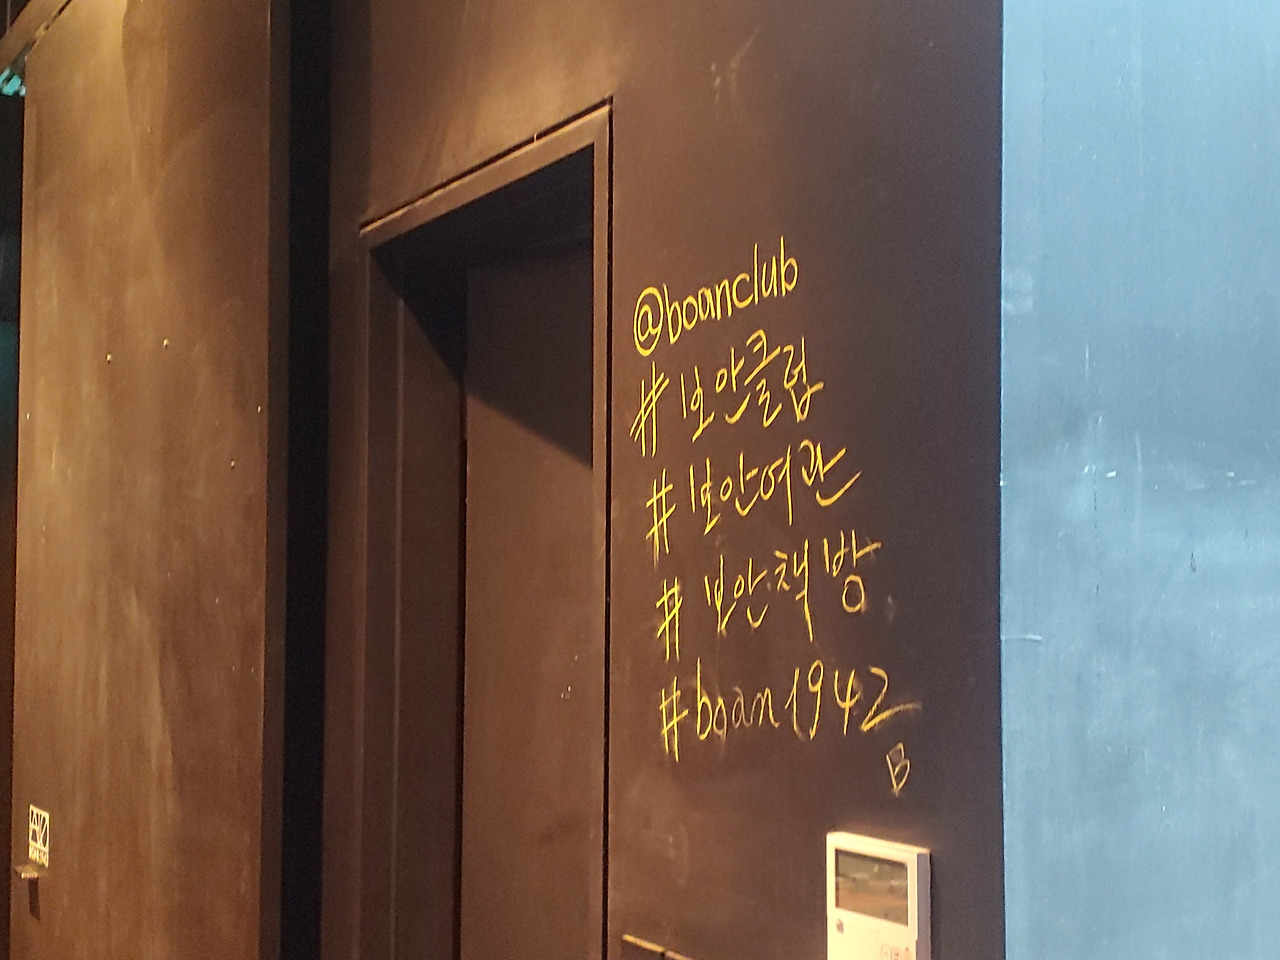 @boanclub
# 보안클럽
# 보안여관
# 보안책방
#boan1942
B